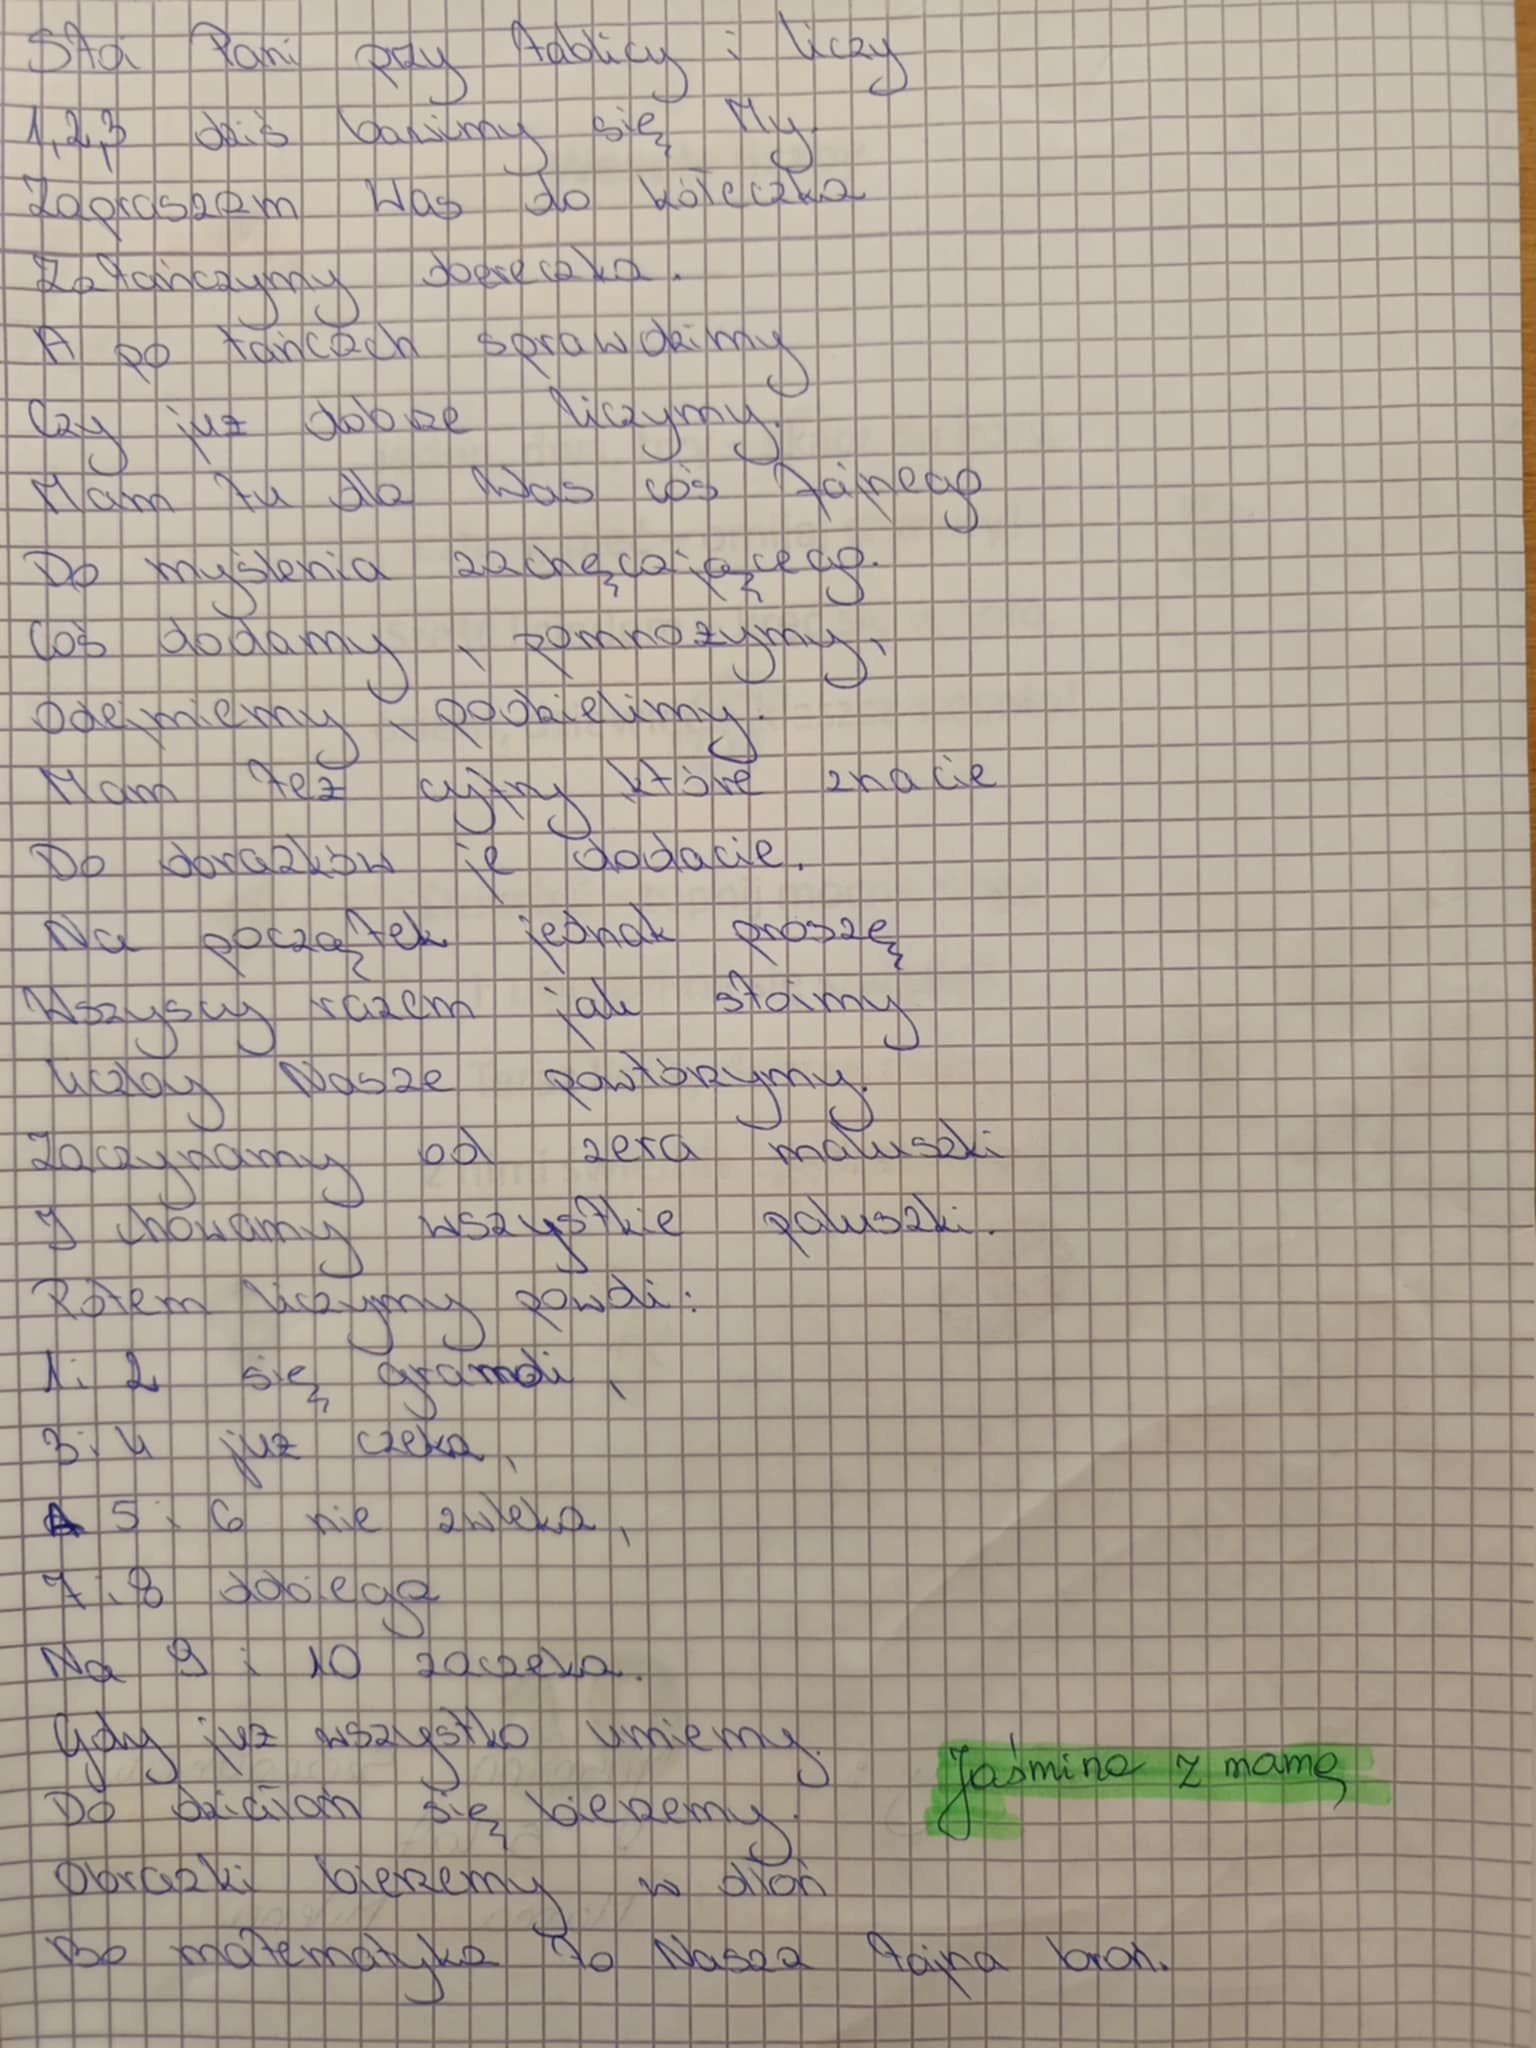 Stoi Pani przy tablicy i liczy
1,2,3 dziś bawimy się My.
Zapraszam Was do kółeczka
Zatańczymy obereczka.
A po tańcach sprawdzimy
Czy już dobrze liczymy.
Mam tu dla Was coś fajnego
Do myślenia zachęcającego.
Coś dodamy, pomnożymy,
Odejmiemy, podzielimy.
Mam też cyfry które znacie
Do obrazków je dodacie.
Na początek jednak proszę
Wszyscy razem jak stoimy
Liczby Nasze powtórzymy.
Zaczynamy od zera maluszki
I chowamy wszystkie paluszki.
Potem liczymy powoli:
1 i 2 się gramoli,
3 i 4 już czeka,
5 i 6 nie zwleka,
7 i 8 dobiega
Na 9 i 10 zaczeka.
Gdy już wszystko umiemy.
Do działań się bierzemy.
Obrazki bierzemy w dłoń
Bo matematyka to Nasza tajna broń.
Jaśmina z mamą